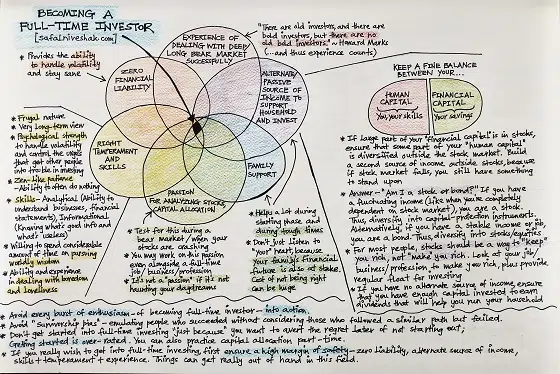 BECOMING A
FULL-TIME INVESTOR
[safalniveshak.com]
* Provides the ability
to handle volatility
and stay sane
EXPERIENCE OF
DEALING WITH DEEP/
LONG BEAR MARKET
SUCCESSFULLY
"There are old investors, and there are
bold investors, but there are no
old bold investors." - Howard Marks
(...and thus experience counts)
ZERO
FINANCIAL
LIABILITY
ALTERNATE/
PASSIVE
SOURCE OF
INCOME TO
SUPPORT
HOUSEHOLD
AND INVEST
RIGHT
TEMPERAMENT
AND SKILLS
FAMILY
SUPPORT
PASSION
FOR ANALYZING STOCKS
CAPITAL ALLOCATION
* Frugal nature
* Very long-term view
* Psychological strength
to handle volatility
and control the urges
that get other people
into trouble in investing
* Zen-like patience
- Ability to often do nothing
* Skills - Analytical (Ability to
understand businesses, financial
statements), Informational
(Knowing what's good info and
what's useless)
* Willing to spend considerable
amount of time on pursuing
worldly wisdom
* Ability and experience
in dealing with boredom
and loneliness
* Test for this during a
bear market / when your
stocks are crashing
* You may work on this passion
even alongside a full-time
job/business/profession
* It's not a "passion" if it's not
haunting your daydreams
* Helps a lot during
starting phase and
during tough times
* Don't just listen to
your heart, because
your family's financial
future is also at stake.
Cost of not being right
can be huge
KEEP A FINE BALANCE
BETWEEN YOUR...
HUMAN
CAPITAL
You, your skills
FINANCIAL
CAPITAL
Your savings
* If large part of your "financial capital" is in stocks,
ensure that some part of your "human capital"
is diversified outside the stock market. Build
a second source of income outside stocks, because
if stock market falls, you still have something
to stand upon
* Answer - "Am I a stock or bond?" If you have
a fluctuating income (like when you're completely
dependent on stock market), you are a stock.
Thus diversify into capital protection instruments.
Alternatively, if you have a stable income or job
you are a bond. Thus, diversify into stocks/equities.
* For most people, stocks should be a way to "keep"
you rich, not "make" you rich. Look at your job/
business/profession to make you rich plus provide
regular float for investing
* If you have no alternate source of income, ensure
that you have enough capital invested to earn
dividends that will help you run your household
* Avoid every burst of enthusiasm - of becoming full-time investor - into action.
* Avoid "survivorship bias" - emulating people who succeeded without considering those who followed a similar path but failed.
* Don't get started into full-time investing 'just because' you want to avert the regret later of not starting out;
Getting started is over-rated. You can also practice capital allocation part-time.
* If you really wish to get into full-time investing, first ensure a high margin of safety - zero liability, alternate source of income,
skills + temperament + experience. Things can get really out of hand in this field.